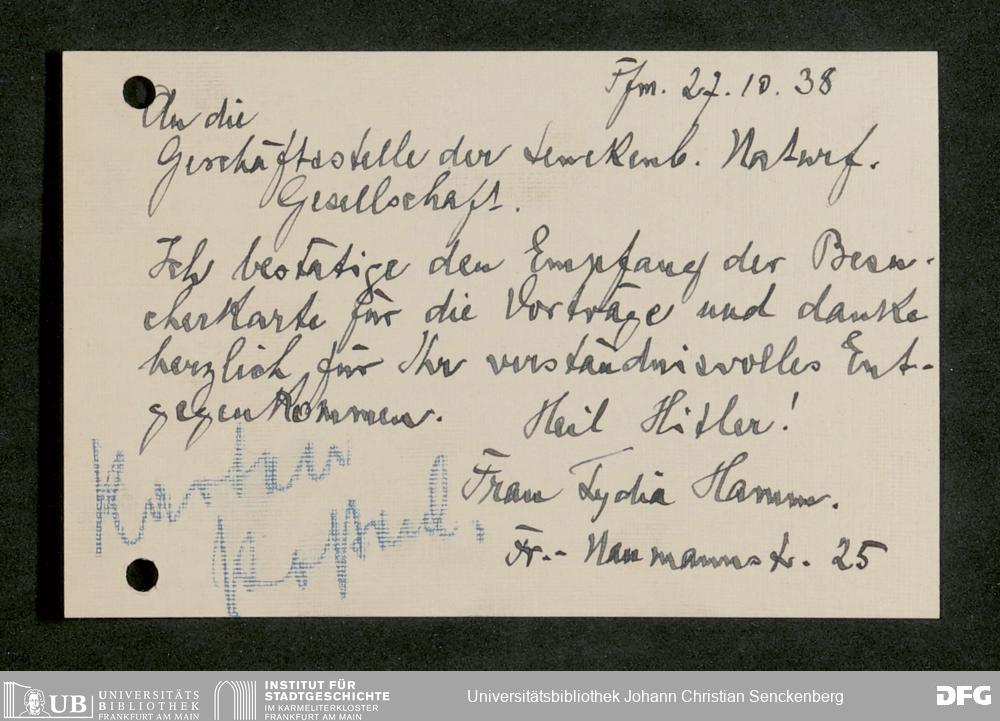 Ffm. 27.10.38
An die
Geschäftsstelle der Senckenb. Naturf.
Gesellschaft.
Ich bestätige den Empfang der Besu-
cherkarte für die Vorträge und danke
herzlich für Ihr verständnisvolles Ent-
gegenkommen. Heil Hitler!
Frau Lydia Hamm.
Fr.- Naumannstr. 25
UB UNIVERSITÄTS
BIBLIOTHEK
FRANKFURT AM MAIN
INSTITUT FÜR
STADTGESCHICHTE
IM KARMELITERKLOSTER
FRANKFURT AM MAIN
Universitätsbibliothek Johann Christian Senckenberg
DFG